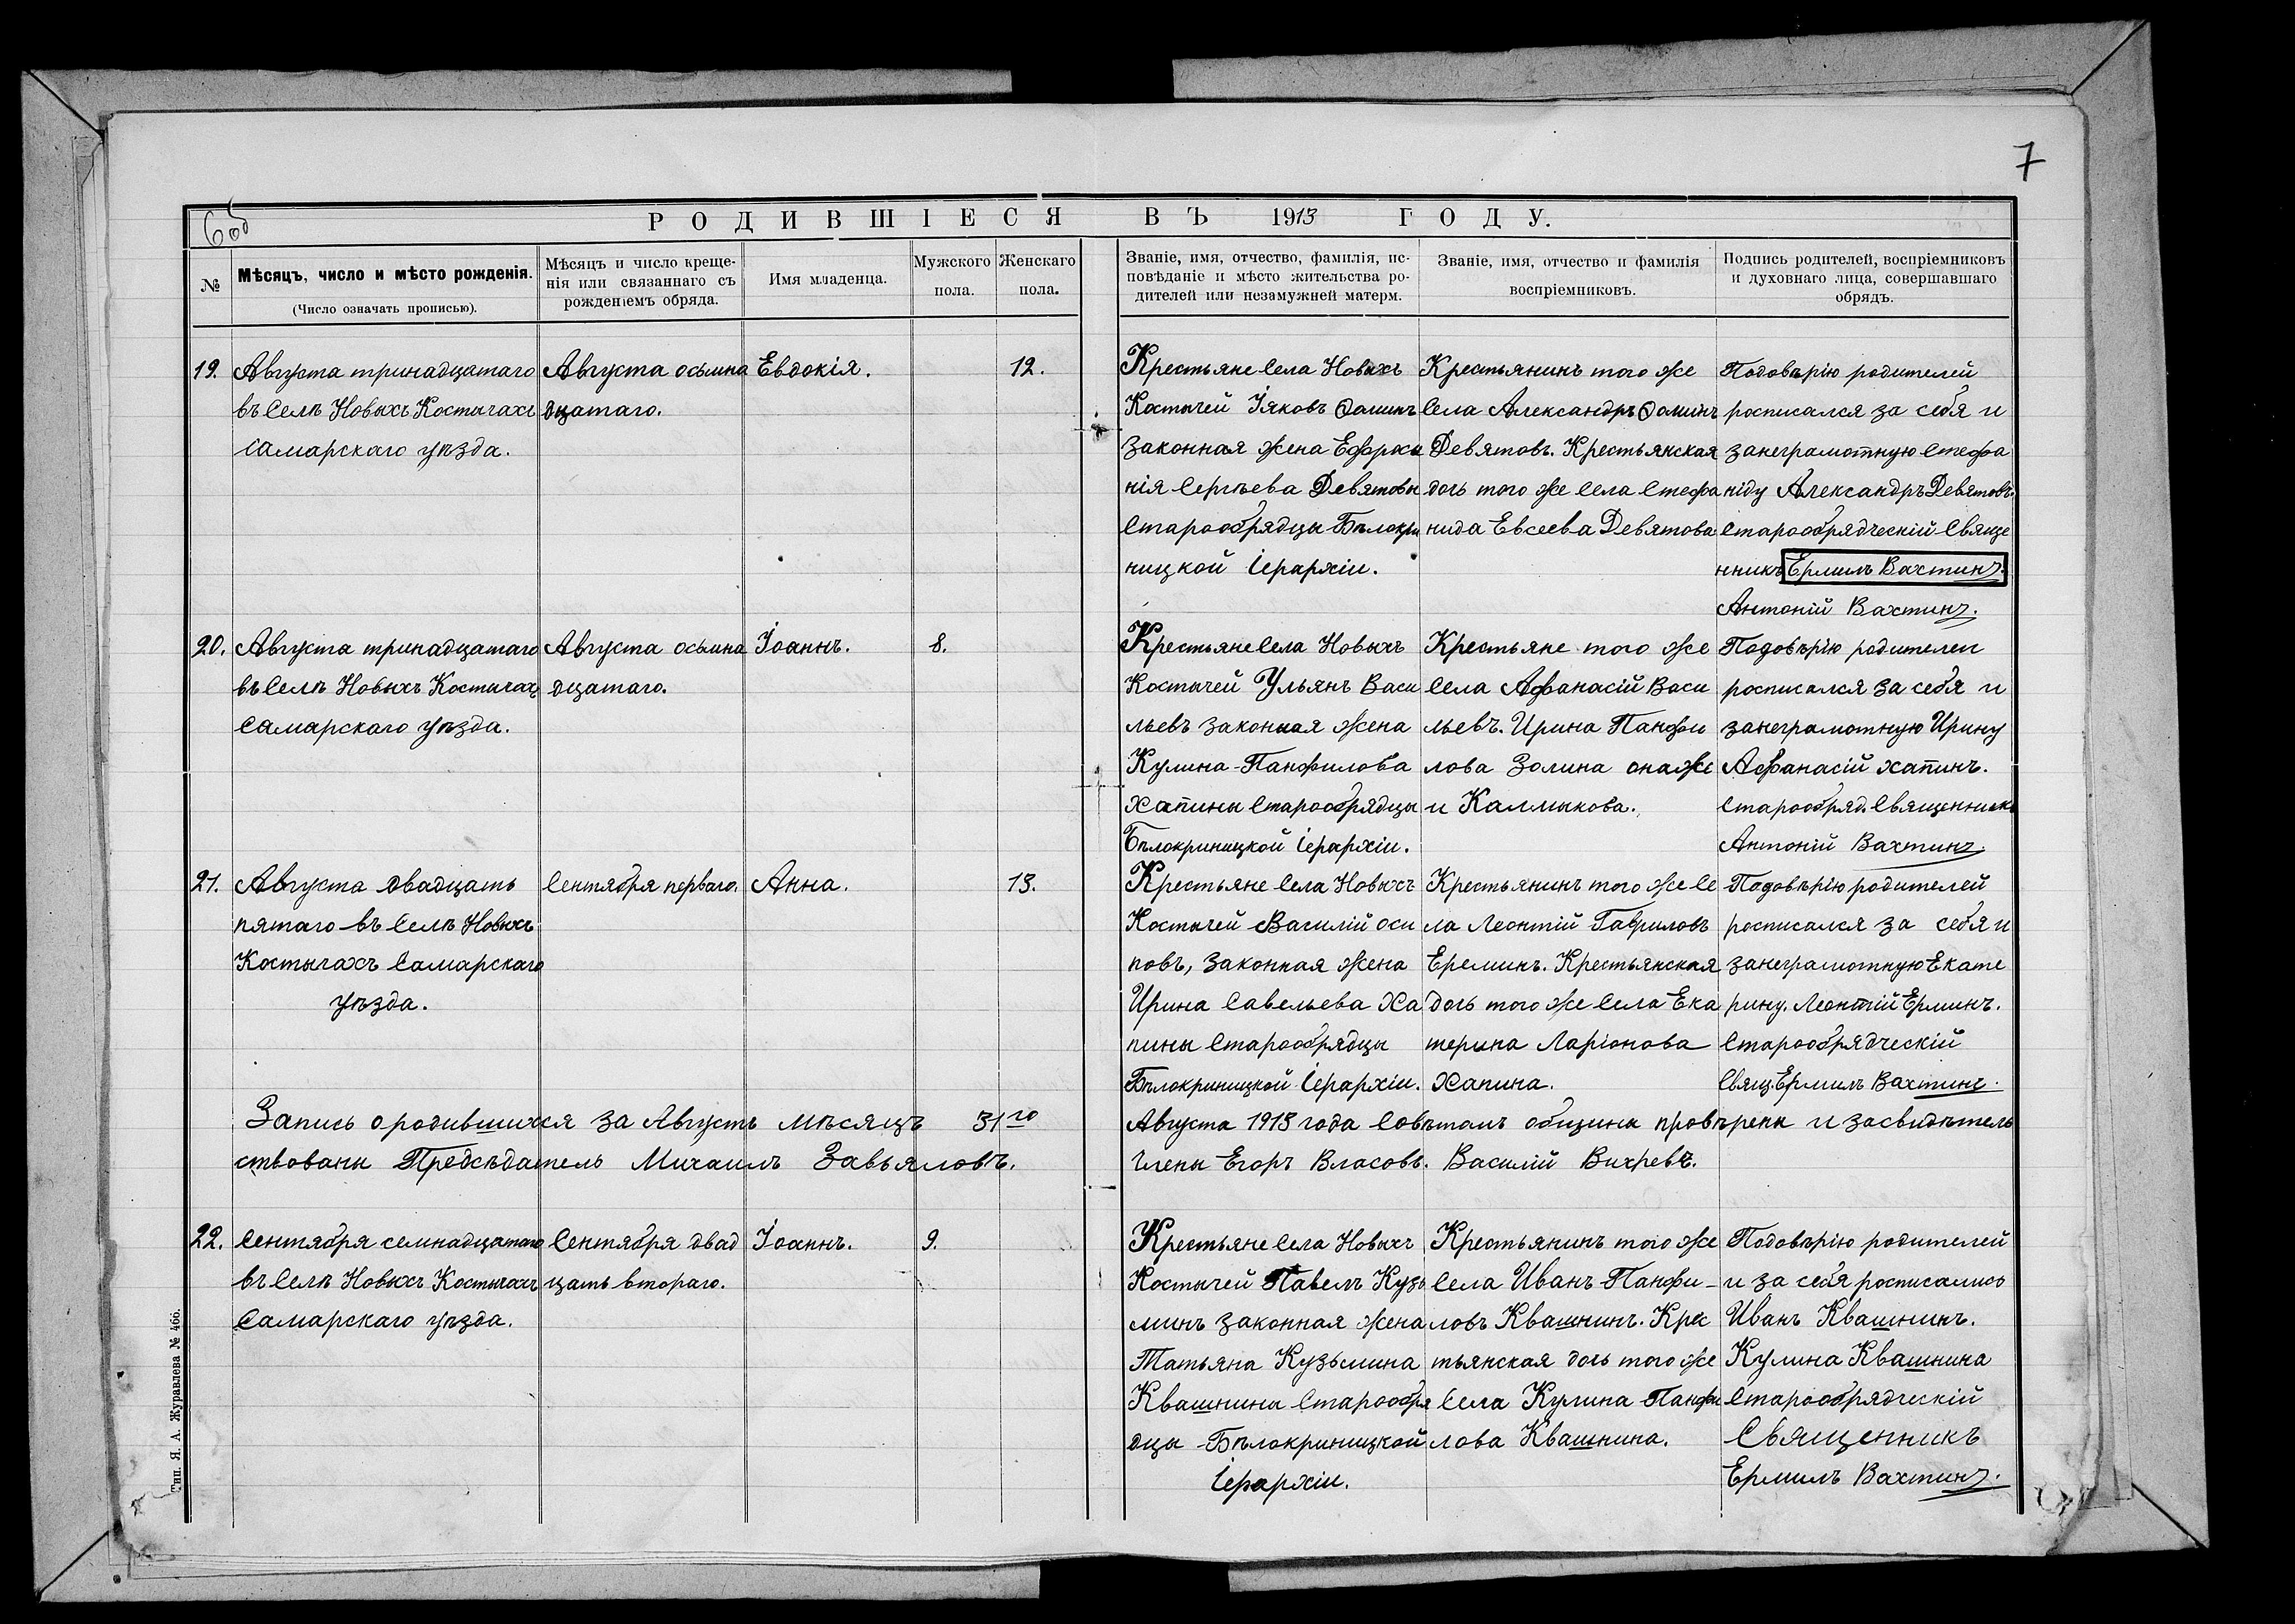 7
6об
РОДИВШІЕСЯ ВЪ 1913 ГОДУ.
№
Мѣсяцъ, число и мѣсто рожденія.
(Число означать прописью).
Мѣсяцъ и число креще-
нія или связаннаго съ
рожденіемъ обряда.
Имя младенца.
Мужского
пола.
Женскаго
пола.
Званіе, имя, отчество, фамилія, ис-
повѣданіе и мѣсто жительства ро-
дителей или незамужней матерм.
Званіе, имя, отчество и фамилія
воспріемниковъ.
Подпись родителей, воспріемниковъ
и духовнаго лица, совершавшаго
обрядъ.
19.
Августа тринадцатаго
въ Селѣ Новыхъ Костычахъ
Самарскаго уѣзда.
Августа осьмна
дцатаго.
Евдокія.
12.
Крестьяне Села Новыхъ
Костычей Іяковъ Фоминъ
Законная Жена Ефроси
нія Сергѣева Девятовы
Старообрядцы Бѣлокри
ницкой Іерархіи.
Крестьянинъ того Же
Села Александръ Фоминъ
Девятовъ. Крестьянская
дочь того Же Села Стефа
нида Евсеева Девятова
Подовѣрію родителей
росписался за себя и
занеграмотную Стефа
ніду Александръ Девятовъ.
Старообрядческій Свяще
нникъ Ермилъ Вахтинъ.
Антоній Вахтинъ.
20.
Августа тринадцатаго
въ Селѣ Новыхъ Костычахъ
Самарскаго уѣзда.
Августа осьмна
дцатаго.
Іоаннъ.
8.
Крестьяне Села Новыхъ
Костычей Ульянъ Васи
льевъ законная Жена
Кулина Панфилова
Хапины Старообрядцы
Бѣлокриницкой Іерархіи.
Крестьяне того Же
Села Афанасій Васи
льевъ. Ирина Панфи
лова Золина онаЖе
и Калмыкова.
Подовѣрію родителей
росписался за себя и
занеграмотную Ирину
Афанасій Хапинъ.
Старообряд. Священникъ
Антоній Вахтинъ.
21.
Августа двадцать
пятаго въ Селѣ Новыхъ
Костычахъ Самарскаго
уѣзда.
Сентября перваго.
Анна.
13.
Крестьяне Села Новыхъ
Костычей Василій Оси
повъ, Законная Жена
Ирина Савельева Ха
пины Старообрядцы
Бѣлокриницкой Іерархіи.
Крестьянинъ того Же Се
ла Леонтій Гавриловъ
Ереминъ. Крестьянская
дочь того Же Села Ека
терина Ларіонова
Хапина.
Подовѣрію родителей
росписался за себя и
занеграмотную Екате
рину. Леонтій Ерминъ.
Старообрядческій
Свящ. Ермилъ Вахтинъ.
Запись о родившихся за Августъ мѣсяцъ 31го Августа 1913 года Совѣтомъ общины провѣрены и засвидѣтель
ствованы Предсѣдатель Михаилъ Завьяловъ. Члены Егоръ Власовъ. Василій Вихревъ.
22.
Сентября семнадцатаго
въ Селѣ Новыхъ Костычахъ
Самарскаго уѣзда.
Сентября двад
цать втораго.
Іоаннъ.
9.
Крестьяне Села Новыхъ
Костычей Павелъ Кузь
минъ законная Жена
Татьяна Кузьмина
Квашнины Старообря
дцы Бѣлокриницкой
Іерархіи.
Крестьянинъ того Же
Села Иванъ Панфи-
ловъ Квашнинъ. Крес
тьянская дочь того Же
Села Кулина Панфи
лова Квашнина.
Подовѣрію родителей
и за себя росписались
Иванъ Квашнинъ.
Кулина Квашнина
Старообрядческій
Священникъ
Ермилъ Вахтинъ.
Тип. Я. А. Журавлева № 466.